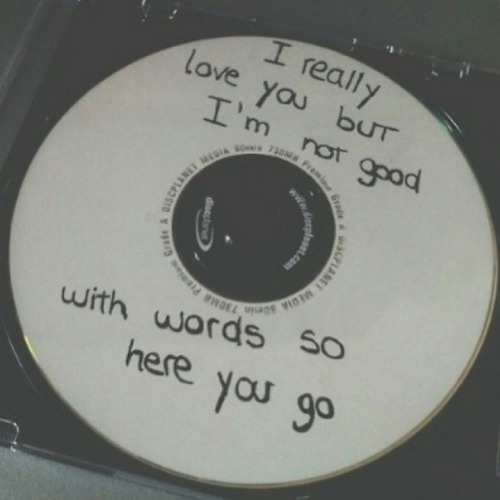 I really
love you but
I'm not good
DISCPLANET MEDIA 80min 730MB Premium Grade A DISCPLANET MEDIA 80min 730MB Premium Grade A
www.discplanet.com
with words so
here you go